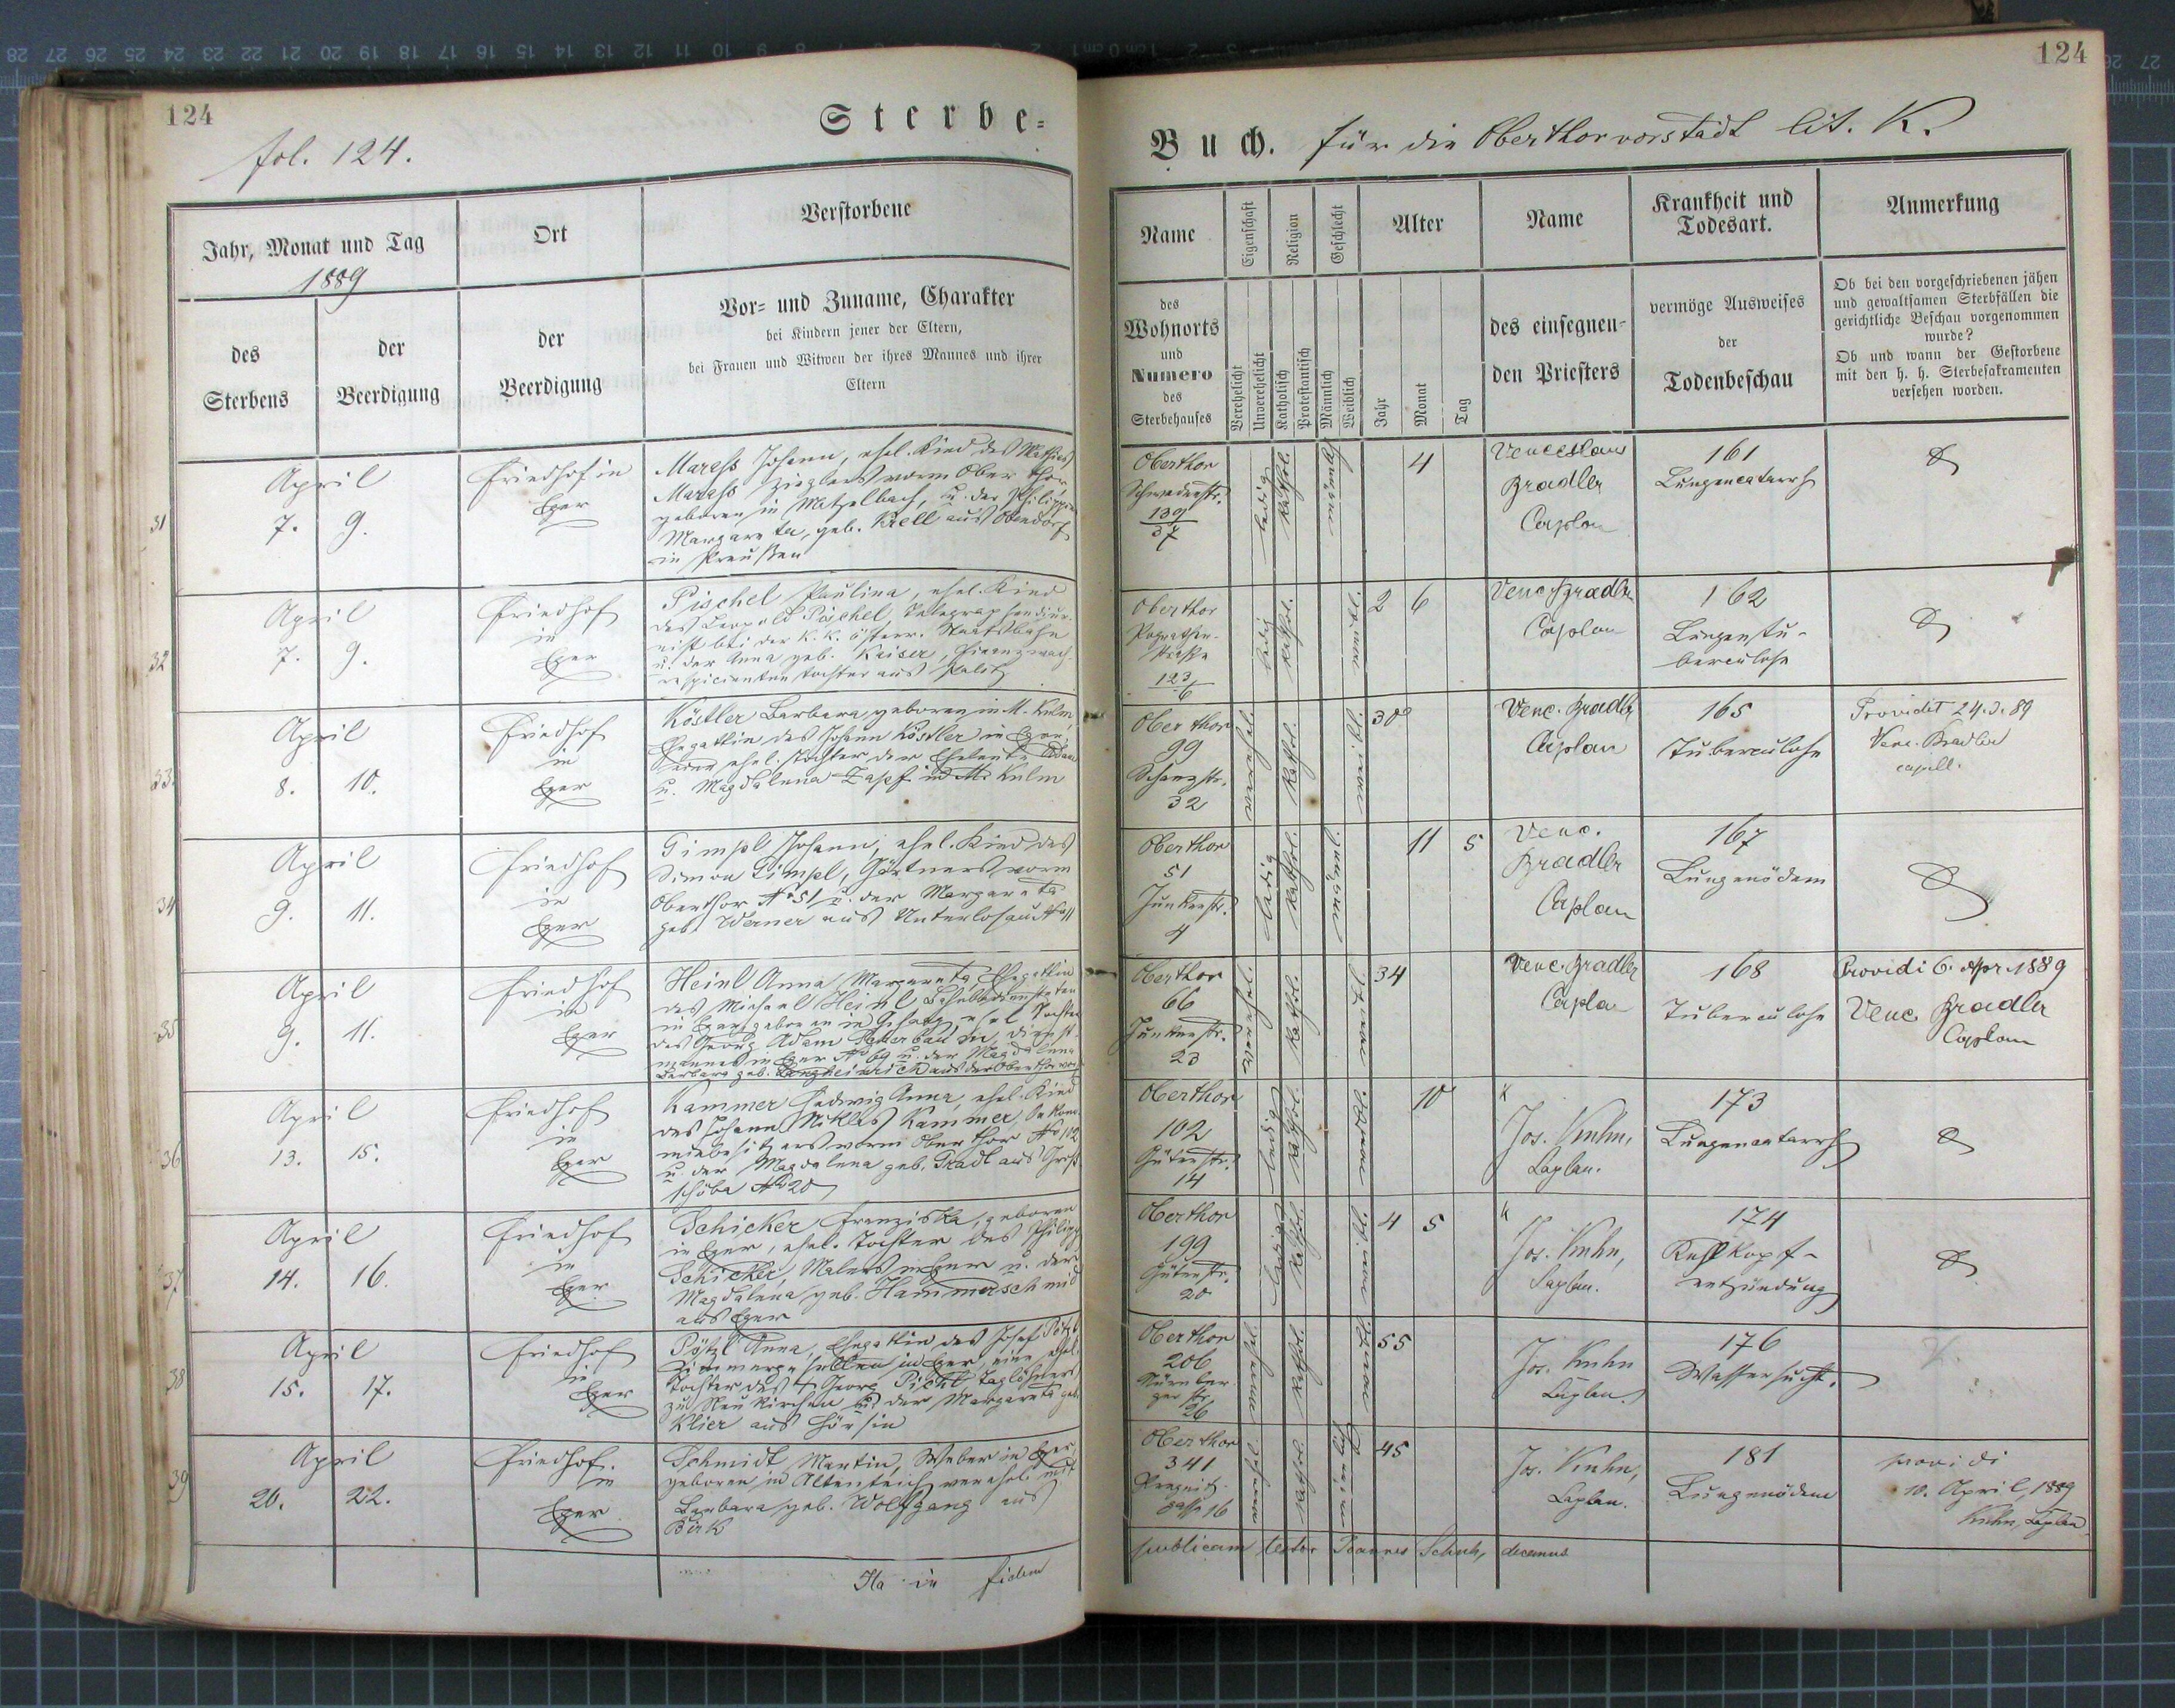 124
fol. 124.
Sterbe-
Jahr, Monat und Tag
1889
Ort
Verstorbene
des
Sterbens
der
Beerdigung
der
Beerdigung
Vor- und Zuname, Charakter
bei Kindern jener der Eltern,
bei Frauen und Witwen der ihres Mannes und ihrer
Eltern
31
April
7. 9.
Friedhof in
Eger
Maress Johann, ehel. Kind des Mathias
Maress Zieglers vorm Ober Thor
geboren in Metzelbach, u. der Philippine
Margareta, geb. Krell aus Obendorf
in Preußen
32
April
7. 9.
Friedhof
in
Eger
Pischel Paulina, ehel. Kind
des Leopold Pischel, Telegraphendiur-
nist bei der k. k. österr. Staatsbahn
u. der Anna geb. Kaiser, Finanzwach-
respicienten Tochter aus
33.
April
8. 10.
Friedhof
in
Eger
Köstler Barbara, geboren in M. Kulm,
Ehegattin des Johann Köstler in Eger,
ehel. Tochter der Eheleute Adam
u. Magdalena Zapf in M. Kulm
34
April
9. 11.
Friedhof
in
Eger
Gimpl Johann, ehel. Kind des
Simon Gimpl, Gärtners vorm
Oberthor No 51 u. der Margareta
geb. Werner aus Unterlosau No 11
35
April
9. 11.
Friedhof
in
Eger
Heinl Anna Margareta, Ehegattin
des Michael Heinl
in Eger, geboren in ehel. Tochter
des Georg Adam Dienst-
mannes in Eger No 69 u. der Magdalena
Barbara geb. aus der Oberthorvorst.
36
April
13. 15.
Friedhof
in
Eger
Kammer Hedwig Anna, ehel. Kind
des Johann Niklas Kammer, Oekono-
miebesitzers vorm Ober Thor No 102
u. der Magdalena geb. Gradl aus Groß-
schöba No 20
37
April
14. 16.
Friedhof
in
Eger
Schicker Franziska, geboren
in Eger, ehel. Tochter des Philipp
Schicker, Malers in Eger u. der
Magdalena geb. Hammerschmid
aus Eger
38
April
15. 17.
Friedhof
in
Eger
Pötzl Anna, Ehegattin des Josef Pötzl
Zimmergesellen in Eger, eine ehel.
Tochter des † Georg Pichl Taglöhners
zu Neukirchen u. der Margareta geb.
Klier aus Hörsin
39
April
20. 22.
Friedhof
in
Eger
Schmidt Martin, Weber in Eger,
geboren in Altenteich verehel. mit
Barbara geb. Wolfgang aus
Pirk
Ita in fidem
124
Buch. für die Oberthorvorstadt lit. K.
Name
Eigenschaft
Religion
Geschlecht
Alter
Name
Krankheit und
Todesart.
Anmerkung
des
Wohnorts
und
Numero
des
Sterbehauses
Verehelicht
Unverehelicht
Katholisch
Protestantisch
Männlich
Weiblich
Jahr
Monat
Tag
des einsegnen-
den Priesters
vermöge Ausweises
der
Todenbeschau
Ob bei den vorgeschriebenen jähen
und gewaltsamen Sterbfällen die
gerichtliche Beschau vorgenommen
wurde?
Ob und wann der Gestorbene
mit den h. h. Sterbesakramenten
versehen worden.
Oberthor
Schwedenstr.
139
37
ledig
kathol.
männl.
4
Venceslaus
Bradler
Caplan
161
Lungencatarrh
Oberthor
123
6
ledig
kathol.
weibl.
2 6
Venc. Bradler
Caplan
162
Lungentu-
berculose
Oberthor
99
Schanzstr.
32
verehel.
kathol.
weibl.
30
Venc. Bradler
Caplan
165
Tuberculose
Providit 24.3.89
Venc. Bradler
capell.
Oberthor
51
Junkerstr.
4
ledig
kathol.
männl.
11 5
Venc.
Bradler
Caplan
167
Lungenödem
Oberthor
66
Junkerstr.
23
verehel.
kathol.
weibl.
34
Venc. Bradler
Caplan
168
Tuberculose
Providi 6. Apr. 1889
Venc. Bradler
Caplan
Oberthor
102
Güterstr.
14
ledig
kathol.
weibl.
10
Jos. Kuhn,
Caplan.
173
Lungencatarrh
Oberthor
199
Güterstr.
20
ledig
kathol.
weibl.
4 5
Jos. Kuhn,
Caplan.
174
Kehlkopf-
entzündung
Oberthor
206
Nürnber-
ger str.
26
verehel.
kathol.
weibl.
55
Jos. Kuhn
Caplan.
176
Wassersucht.
Oberthor
341
gasse 16
verehel.
kathol.
männl.
45
Jos. Kuhn,
Caplan.
181
Lungenödem
providi
10. April, 1889
Kuhn, Caplan
publicam testor Joannes Schuh, decanus